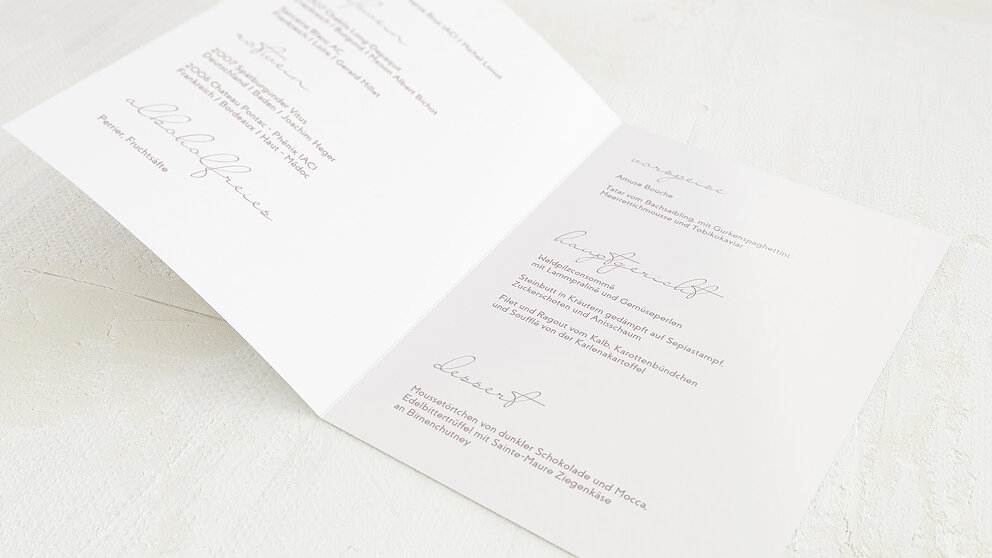 2007 Chablis Long-Depaquit
Frankreich / Burgund / Maison Albert Bichot
Sancerre Blanc AC
Frankreich / Loire / Gerard Millet
rotwein
2007 Spätburgunder Vitus
Deutschland / Baden / Joachim Heger
2006 Chateau Pontac - Phénix (AC)
Frankreich / Bordeaux / Haut - Médoc
alkoholfreies
Perrier, Fruchtsäfte
vorspeise
Amuse Bouche
Tatar vom Bachsaibling, mit Gurkenspaghettini,
Meerrettichmousse und Tobikokaviar
hauptgericht
Waldpilzconsommé
mit Lammpraliné und Gemüseperlen
Steinbutt in Kräutern gedämpft auf Sepiastampf,
Zuckerschoten und Anisschaum
Filet und Ragout vom Kalb, Karottenbündchen
und Soufflé von der Karlenakartoffel
dessert
Moussetörtchen von dunkler Schokolade und Mocca,
Edelbittertrüffel mit Sainte-Maure Ziegenkäse
an Birnenchutney